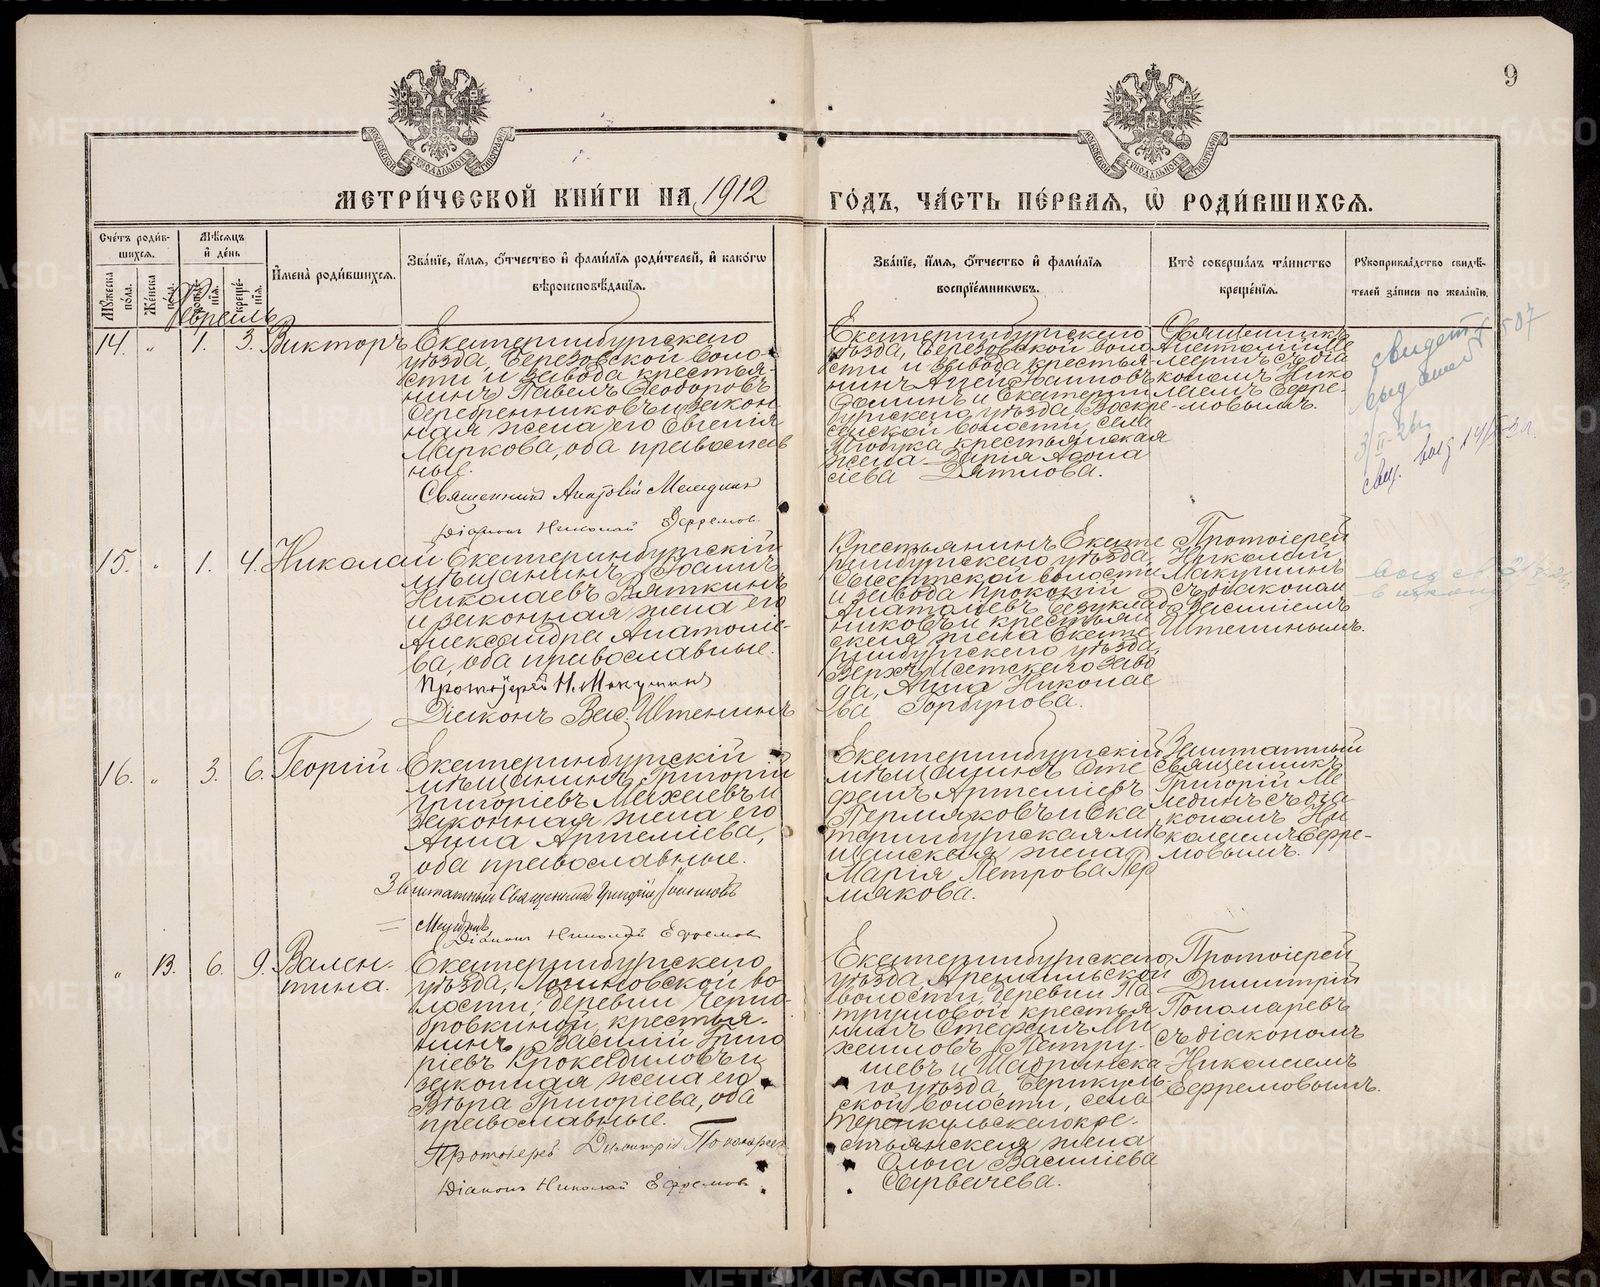 9
МЕТРИ́ЧЕСКОЙ КНИ́ГИ НА 1912 ГО́ДЪ, ЧА́СТЬ ПЕ́РВАЯ, Ѡ҆ РОДИ́ВШИХСЯ.
Сче́тъ роди́вшихся.
Мꙋ́жеска по́ла.
Же́нска по́ла.
Мѣ́сяцъ и҆ де́нь
рожде́нїя.
креще́нїя.
И҆мена̀ роди́вшихся.
Зва́нїе, и҆́мя, ѻ҆́тчество и҆ фами́лїя роди́телей, и҆ како́гѡ
вѣроисповѣ́данїя.
Зва́нїе, и҆́мя, ѻ҆́тчество и҆ фами́лїя
воспрїе́мникѡвъ.
Кто̀ соверша́лъ та́инство
креще́нїя.
Рꙋкоприкла́дство свидѣ́-
телей за́писи по жела́нїю.
Февраль
14. „ 1. 3. Викторъ
Екатеринбургскаго
уѣзда, Березовской воло-
сти и завода крестья-
нинъ Павелъ Ѳеодоровъ
Серебренниковъ и закон
ная жена его Евгенія
Маркова, оба православ
ные.
Священникъ Анатолій Мелединъ
Діаконъ Николай Ефремовъ.
Екатеринбургскаго
уѣзда, Березовской воло
сти и завода крестья-
нинъ Іоанновъ
и Екатерин
бургскаго уѣзда Воскре-
сенской волости, села
крестьянская
жена Дарія
сіева Дятлова.
Священникъ
Анатолій Ме
лединъ съ діа
кономъ Нико
лаемъ Ефре-
мовымъ.
свидет № 507
выд
3/II-26
15. „ 1. 4. Николай
Екатеринбургскій
мѣщанинъ Іоаннъ
Николаевъ Вяткинъ
и законная жена его
Александра Анатоліе-
ва, оба православные.
Протоіерей Н. Макушинъ
Діаконъ Вас. Иштенинъ
Крестьянинъ Екате
ринбургскаго уѣзда,
Сысертской волости
и завода Прокопій
Анатоліевъ Безуклад
никовъ и крестьян
ская жена Екате
ринбургскаго уѣзда,
Верхъ-Исетскаго заво
да, Анна Николае
ва Горбунова.
Протоіерей
Николай
Макушинъ
съ діакономъ
Василіемъ
Иштенинымъ.
16. „ 3. 6. Георгій
Екатеринбургскій
мѣщанинъ Григорій
Григоріевъ Михеевъ и
законная жена его
Анна Артеміева,
оба православные.
Заштатный Священникъ Григорій
Мединъ
Діаконъ Николай Ефремовъ
Екатеринбургскій
мѣщанинъ Сте
фанъ Артеміевъ
Пермяковъ и Ека
теринбургская мѣ
щанская жена
Марія Петрова Пер
мякова.
Заштатный
священникъ
Григорій Ме
лединъ съ діа
кономъ Ни
колаемъ Ефре-
мовымъ.
„ 13. 6. 9. Вален-
тина.
Екатеринбургскаго
уѣзда, Логиновской во
лости, деревни Черно
бровкиной, крестья-
нинъ Василій Григо
ріевъ Крокодиловъ и
законная жена его
Вѣра Григоріева, оба
православные.
Протоіерей Димитрій Пономаревъ
Діаконъ Николай Ефремовъ
Екатеринбургскаго
уѣзда, Арамильской
волости, деревни Па
трушовой крестья
нинъ Стефанъ Ми
хаиловъ Патру-
шевъ и Шадринска
го уѣзда,
ской волости, села
кре-
стьянская жена
Ольга Василіева
Протоіерей
Димитрій
Пономаревъ
съ діакономъ
Николаемъ
Ефремовымъ.